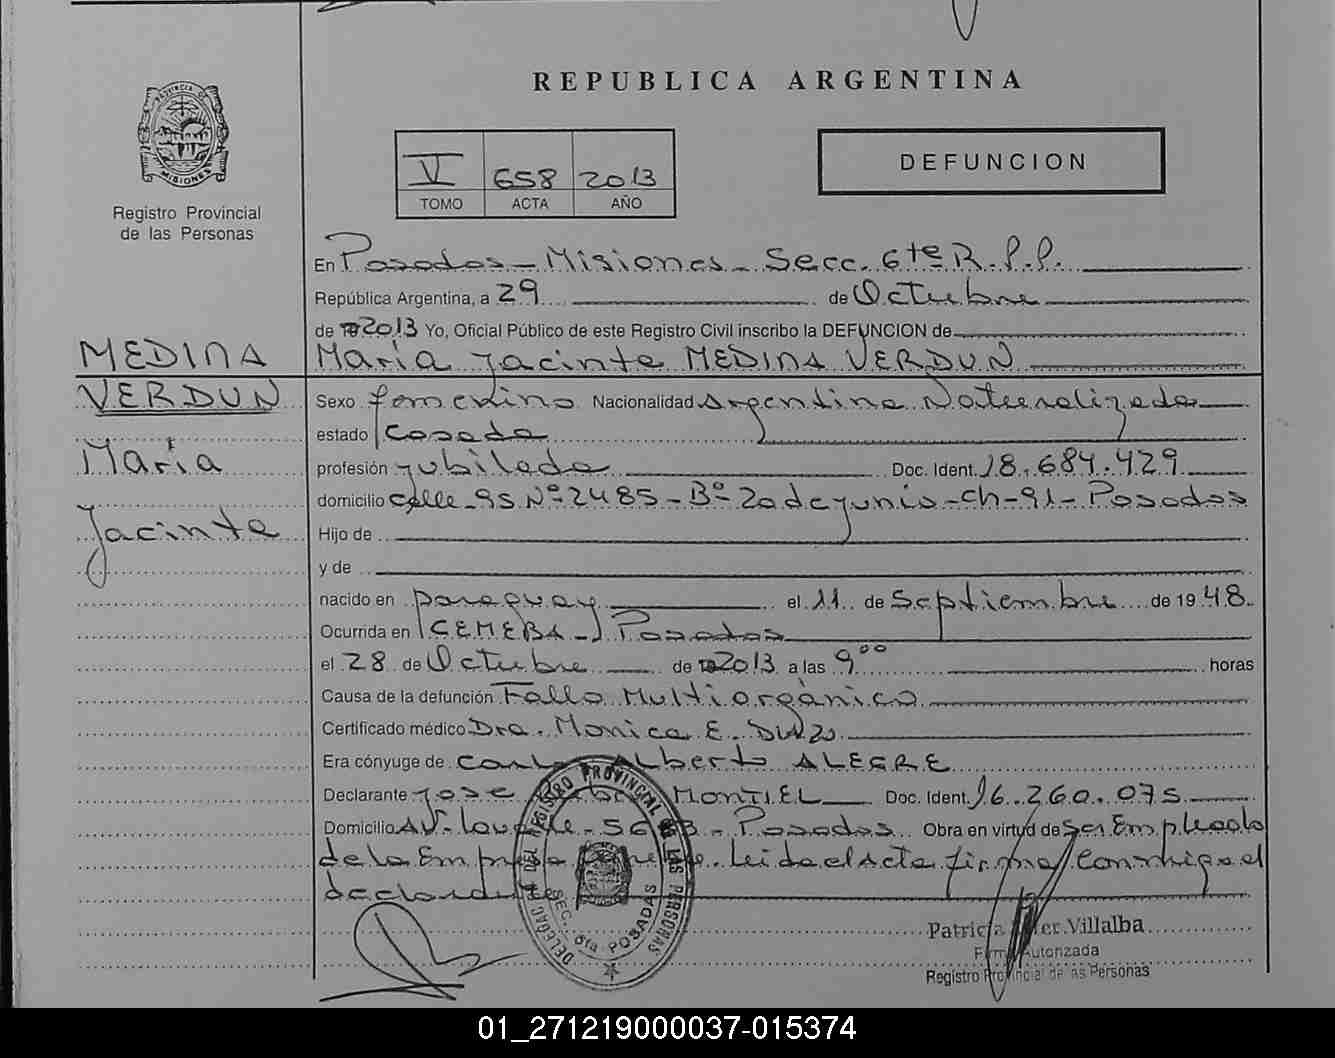 REPUBLICA ARGENTINA
PROVINCIA DE
MISIONES
Registro Provincial
de las Personas
VI 658 2013
TOMO ACTA AÑO
DEFUNCION
En Posadas - Misiones - Secc. 6ta R.P.P.
República Argentina, a 29 de Octubre
de 2013 Yo, Oficial Público de este Registro Civil inscribo la DEFUNCION de
MEDINA
VERDUN
Maria
Jacinta
María Jacinta MEDINA VERDUN
Sexo femenino Nacionalidad Argentina Naturalizada
estado Casada
profesión jubilada Doc. Ident. 18.684.429
domicilio calle 95 Nº 2485 - Bº 20 de junio - ch - 91 - Posadas
Hijo de
y de
nacido en paraguay el 11 de Septiembre de 1948
Ocurrida en CEMEBA - Posadas
el 28 de Octubre de 2013 a las 9⁰⁰ horas
Causa de la defunción Fallo Multiorgánico
Certificado médico Dra. Monica E.
Era cónyuge de Carlos Alberto ALEGRE
Declarante Jose MONTIEL Doc. Ident. 16.260.075
Domicilio AV. - Posadas Obra en virtud de ser Empleado
de la Empresa Leida el Acta firma Conmigo el
declarante
DELEGAC DEL REGISTRO PROVINCIAL DE LAS PERSONAS
SEC. 6ta POSADAS
Patricia Villalba
Firma Autorizada
Registro Provincial de las Personas
01_271219000037-015374